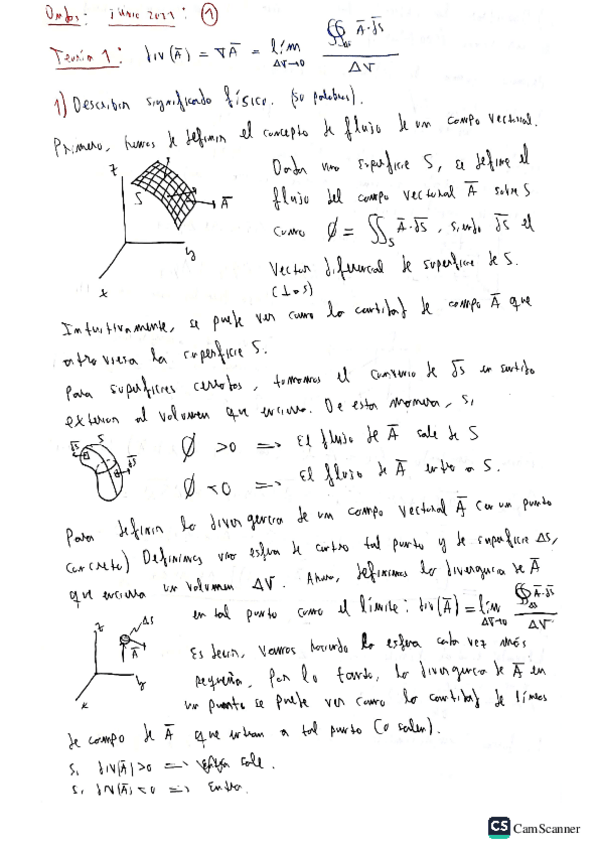 Ondas: Junio 2021: ①
Teoría 1: div(Ā) = ∇Ā = lím ΔV→0 ∯ΔS Ā·d̄S / ΔV
1) Describir significado físico. (su palabras).
Primero, hemos de definir el concepto de flujo de un campo vectorial.
z
S
Ā
y
x
Dada una superficie S, se define el
flujo del campo vectorial Ā sobre S
como Ø = ∬S Ā·d̄S, siendo d̄S el
Vector diferencial de superficie de S.
(⊥ a S)
Intuitivamente, se puede ver como la cantidad de campo Ā que
atraviesa la superficie S.
Para superficies cerradas, tomamos el convenio de d̄S en sentido
exterior al volumen que encierra. De esta manera, si
d̄S
S
d̄S
Ø > 0 => El flujo de Ā sale de S
Ø < 0 => El flujo de Ā entra a S.
Para definir la divergencia de un campo vectorial Ā (en un punto
concreto) Definimos una esfera de centro tal punto y de superficie ΔS,
que encierra un volumen ΔV. Ahora, definimos la divergencia de Ā
en tal punto como el límite: div(Ā) = lím ΔV→0 ∯ΔS Ā·d̄S / ΔV
z
ΔS
Ā
y
x
Es decir, vamos haciendo la esfera cada vez más
pequeña. Por lo tanto, la divergencia de Ā en
un punto se puede ver como la cantidad de líneas
de campo de Ā que entran a tal punto (o salen).
Si div(Ā) > 0 => sale.
Si div(Ā) < 0 => Entra.
CS CamScanner